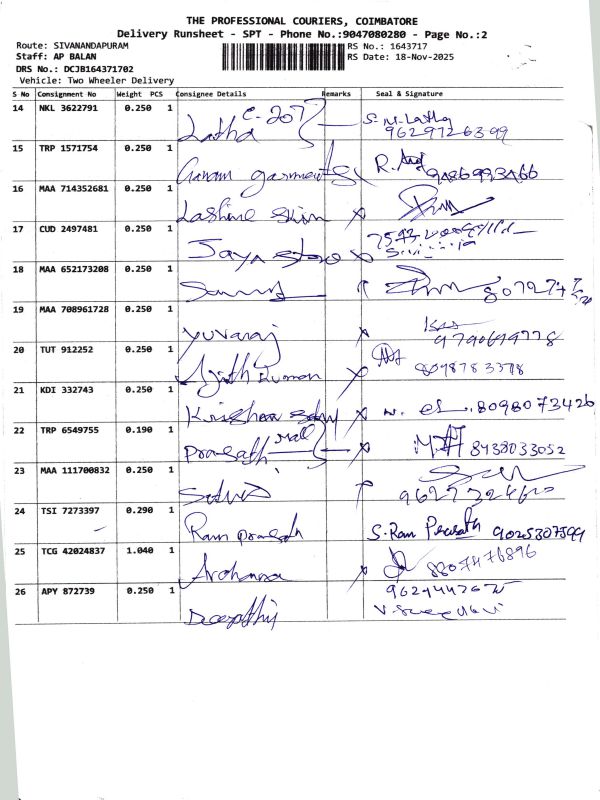 THE PROFESSIONAL COURIERS, COIMBATORE
Delivery Runsheet - SPT - Phone No.:9047080280 - Page No.:2
Route: SIVANANDAPURAM
RS No.: 1643717
Staff: AP BALAN
RS Date: 18-Nov-2025
DRS No.: DCJB164371702
Vehicle: Two Wheeler Delivery
S No Consignment No Weight PCS Consignee Details Remarks Seal & Signature
14 NKL 3622791 0.250 1 Latha C-207 S.M.Latha
9629726399
15 TRP 1571754 0.250 1 garments R.
16 MAA 714352681 0.250 1 Lashine Skin
17 CUD 2497481 0.250 1 Jaya store
18 MAA 652173208 0.250 1
19 MAA 708961728 0.250 1 Yuvaraj
9790699778
20 TUT 912252 0.250 1 Ajith Kumar 8098783378
21 KDI 332743 0.250 1 Krishna 8098073426
22 TRP 6549755 0.190 1 Prasath Mall 8438033052
23 MAA 111700832 0.250 1
24 TSI 7273397 0.290 1 Ram prasath S. Ram Prasath 9025307599
25 TCG 42024837 1.040 1 Archana 8807476896
26 APY 872739 0.250 1 Deepthi